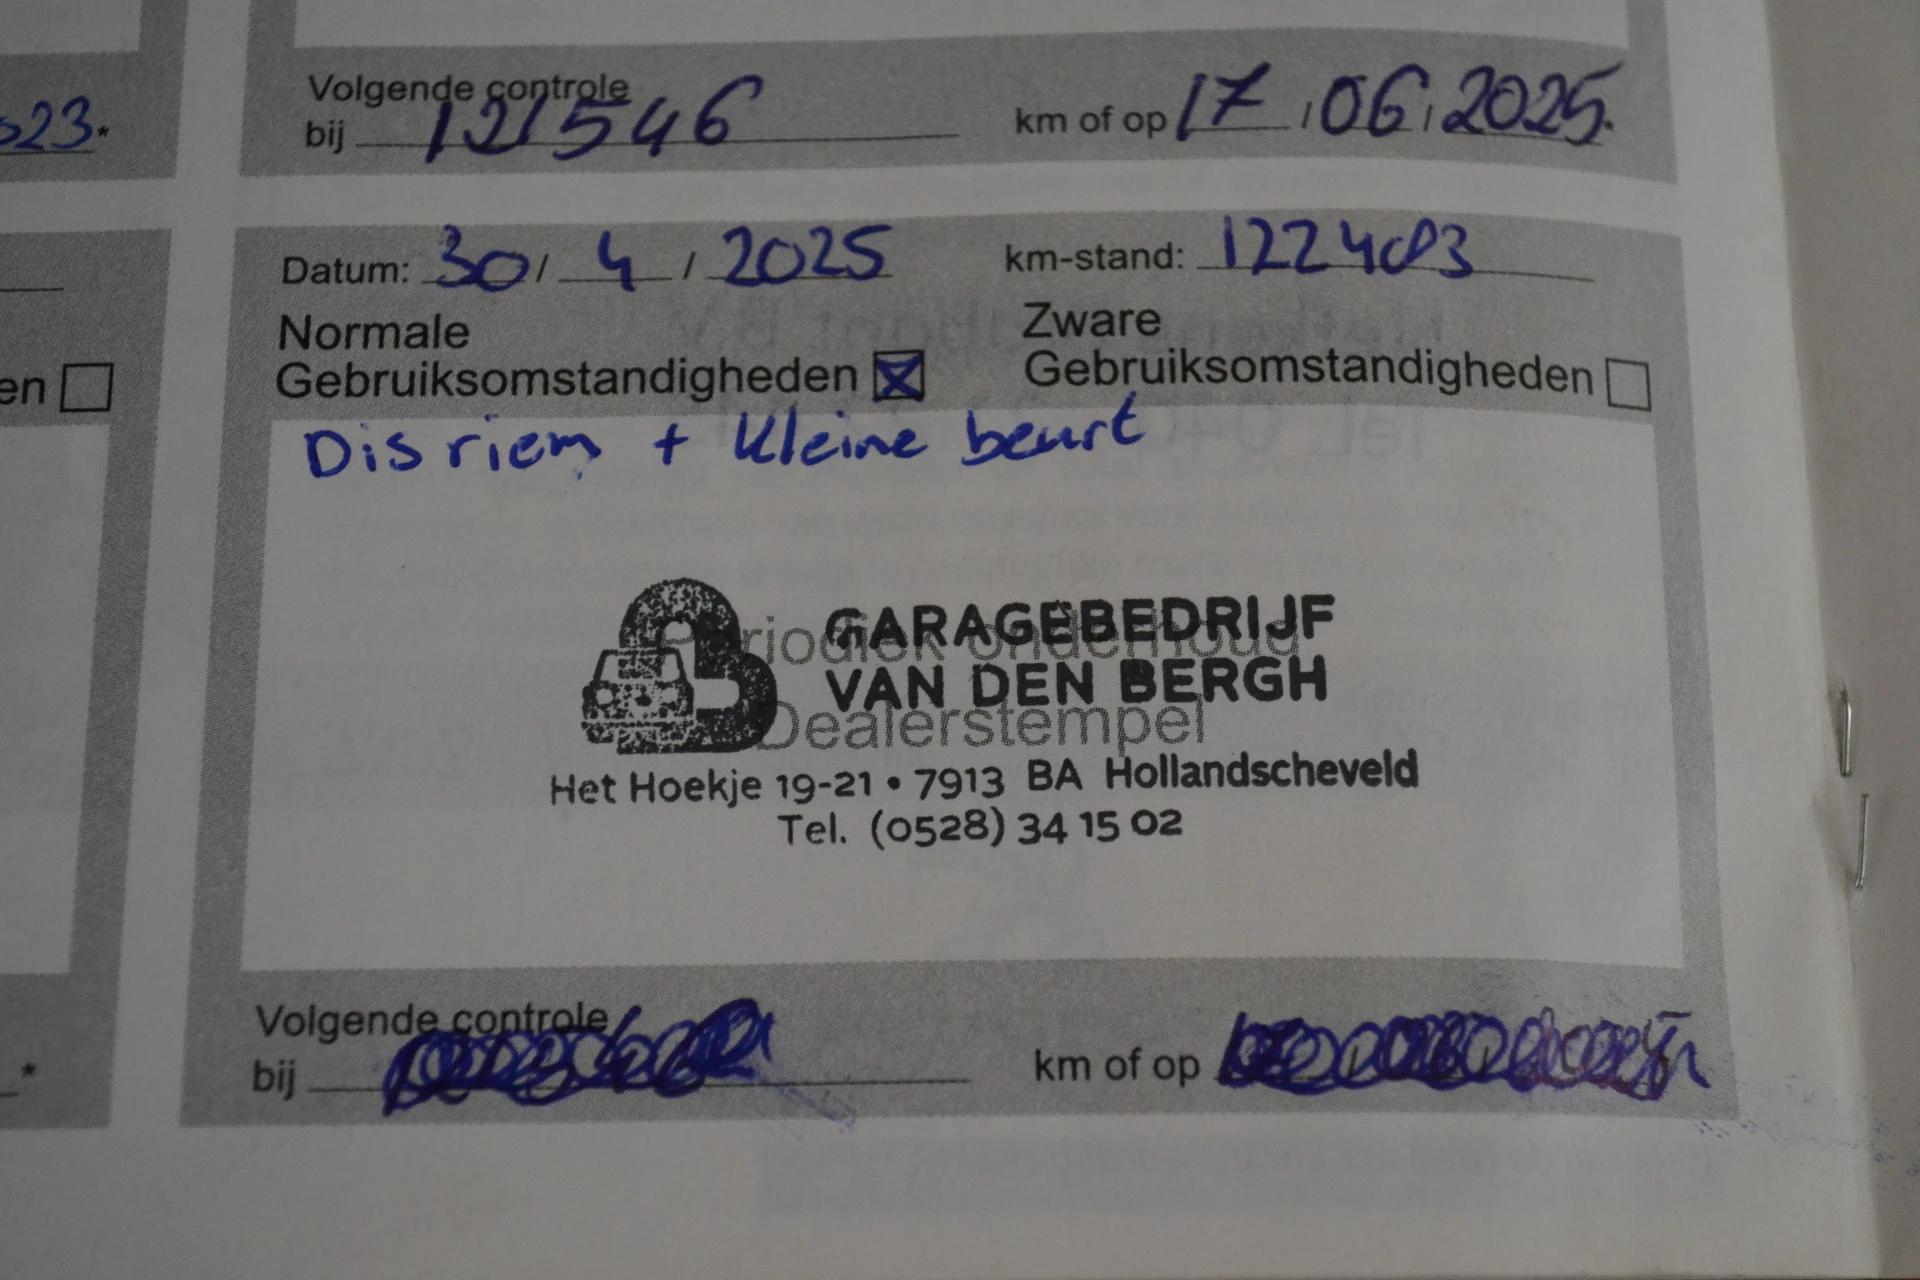 Volgende controle
bij 121546 km of op 17/06/2025.
023.*
Datum: 30/4/2025 km-stand: 122403
Normale Zware
Gebruiksomstandigheden Gebruiksomstandigheden
en
Dis riem + kleine beurt
GARAGEBEDRIJF
Periodiek onderhoud
VAN DEN BERGH
Dealerstempel
Het Hoekje 19-21 • 7913 BA Hollandscheveld
Tel. (0528) 34 15 02
Volgende controle
bij km of op
*